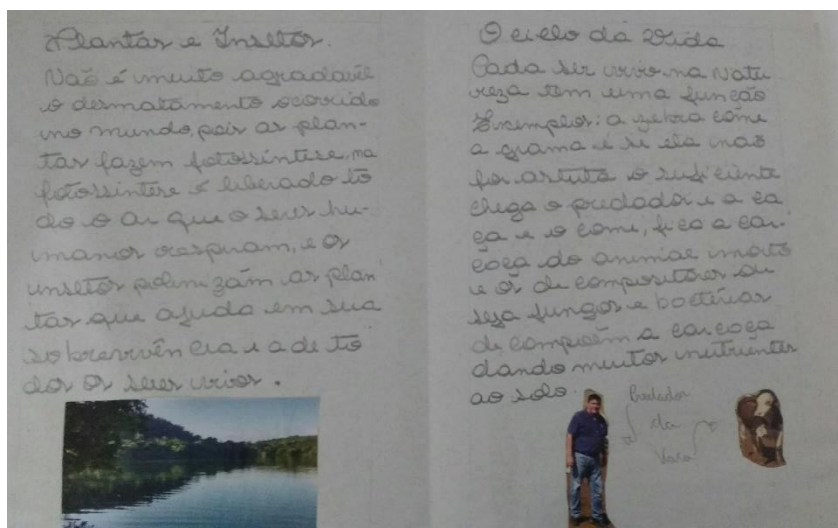 Plantas e Insetos.
Não é muito agradavel
o desmatamento ocorrido
no mundo, pois as plan-
tas fazem fotossíntese, na
fotossíntese é liberado to
do o ar que o seres hu-
manos respiram, e os
insetos polinizám as plan
tas que ajuda em sua
sobrevivência e a de to
dos os seres vivos.
O ciclo da Vida
Cada ser vivo na Natu
reza tem uma função
Exemplos: a zebra come
a grama e se ela não
for astuta o suficiente
chega o predador e a ca
ça e o come, fica a car
coça do animal morto
e os de compositores ou
seja fungos e bactérias
de compoẽm a carcoça
dando muitos nutrientes
ao solo.
Predador
da
Vaca